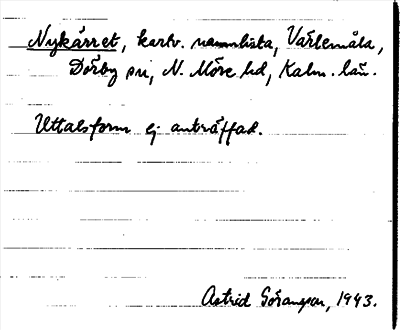 Nykärret, kartv. namnlista, Värlemåla,
Dörby sn, N. Möre hd, Kalm. län.
Uttalsform ej anträffad.
Astrid Göransson, 1943.